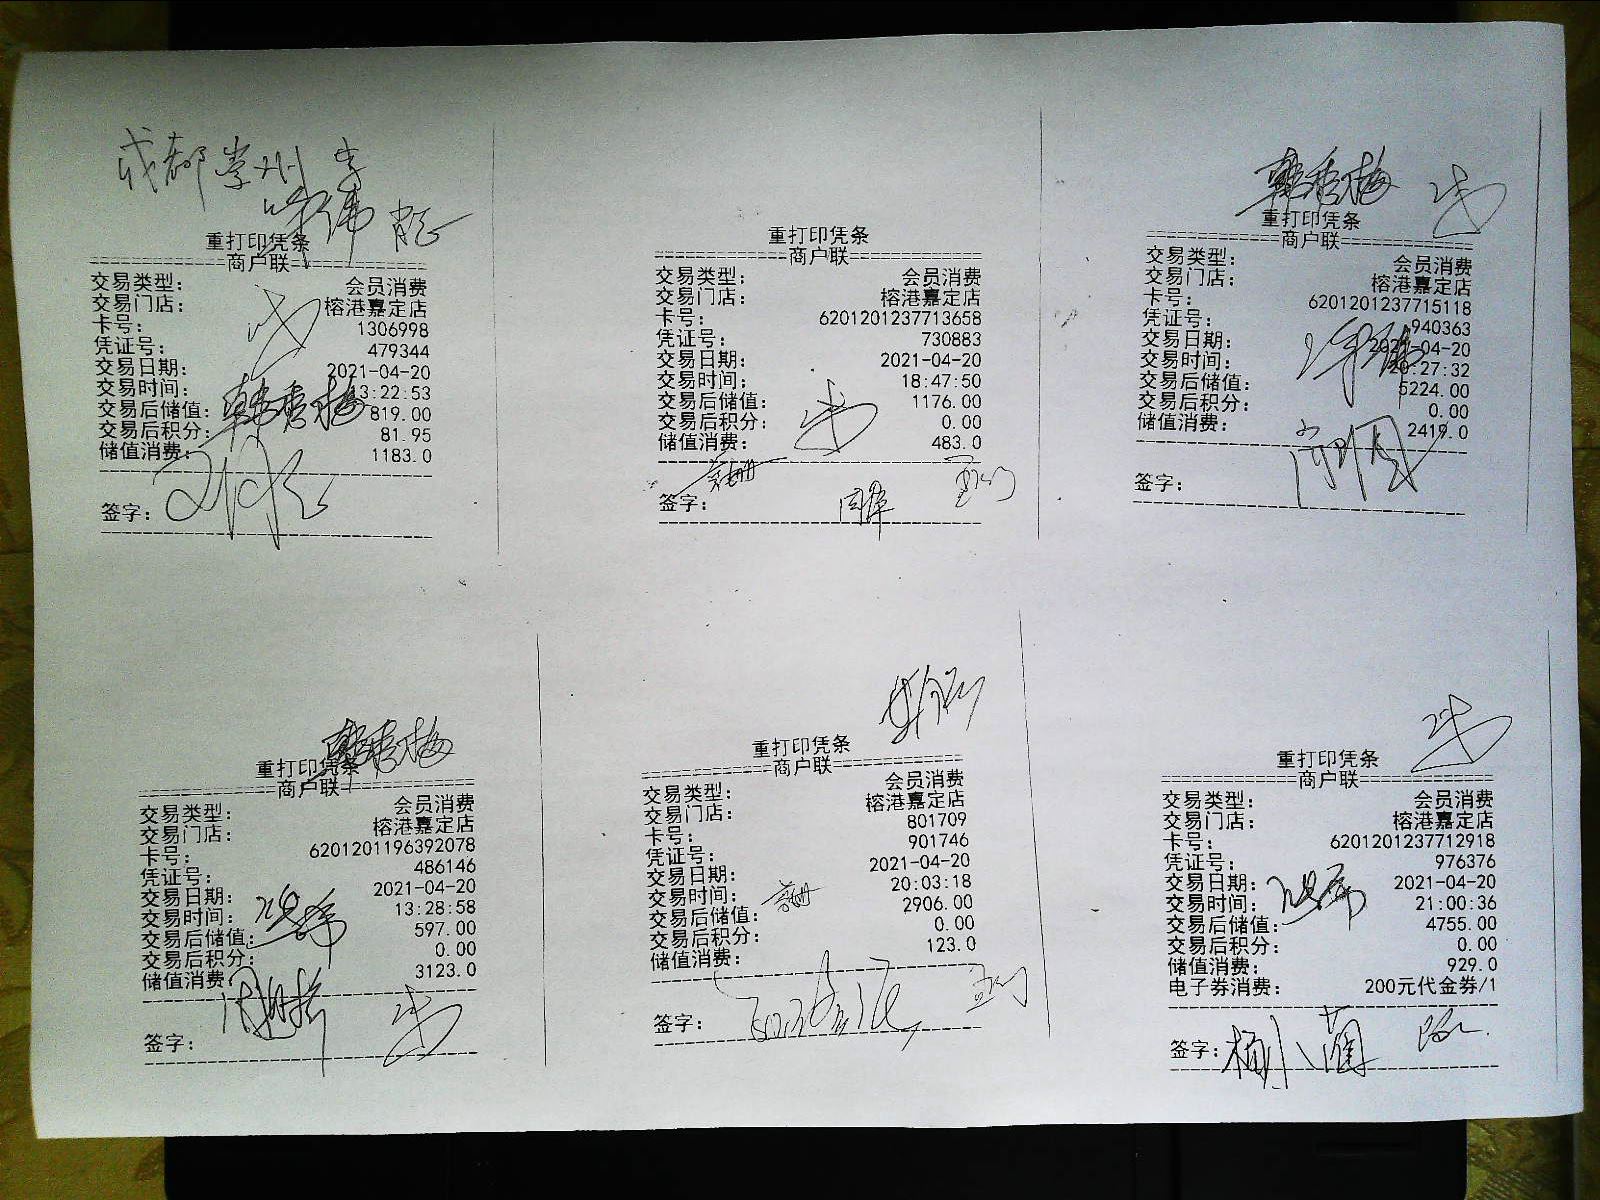 成都
重打印凭条
==========商户联==========
交易类型： 会员消费
交易门店： 榕港嘉定店
卡号： 1306998
凭证号： 479344
交易日期： 2021-04-20
交易时间： 13:22:53
交易后储值： 819.00
交易后积分： 81.95
储值消费： 1183.0
韩秀梅
签字：
重打印凭条
==========商户联==========
交易类型： 会员消费
交易门店： 榕港嘉定店
卡号： 6201201237713658
凭证号： 730883
交易日期： 2021-04-20
交易时间： 18:47:50
交易后储值： 1176.00
交易后积分： 0.00
储值消费： 483.0
签字：
韩秀梅
重打印凭条
==========商户联==========
交易类型： 会员消费
交易门店： 榕港嘉定店
卡号： 6201201237715118
凭证号： 940363
交易日期： 2021-04-20
交易时间： :27:32
交易后储值： 5224.00
交易后积分： 0.00
储值消费： 2419.0
签字：
韩秀梅
重打印凭条
==========商户联==========
交易类型： 会员消费
交易门店： 榕港嘉定店
卡号： 6201201196392078
凭证号： 486146
交易日期： 2021-04-20
交易时间： 13:28:58
交易后储值： 597.00
交易后积分： 0.00
储值消费： 3123.0
签字：
重打印凭条
==========商户联==========
交易类型： 会员消费
交易门店： 榕港嘉定店
卡号： 801709
凭证号： 901746
交易日期： 2021-04-20
交易时间： 20:03:18
交易后储值： 2906.00
交易后积分： 0.00
储值消费： 123.0
签字：
重打印凭条
==========商户联==========
交易类型： 会员消费
交易门店： 榕港嘉定店
卡号： 6201201237712918
凭证号： 976376
交易日期： 2021-04-20
交易时间： 21:00:36
交易后储值： 4755.00
交易后积分： 0.00
储值消费： 929.0
电子券消费： 200元代金券/1
签字：